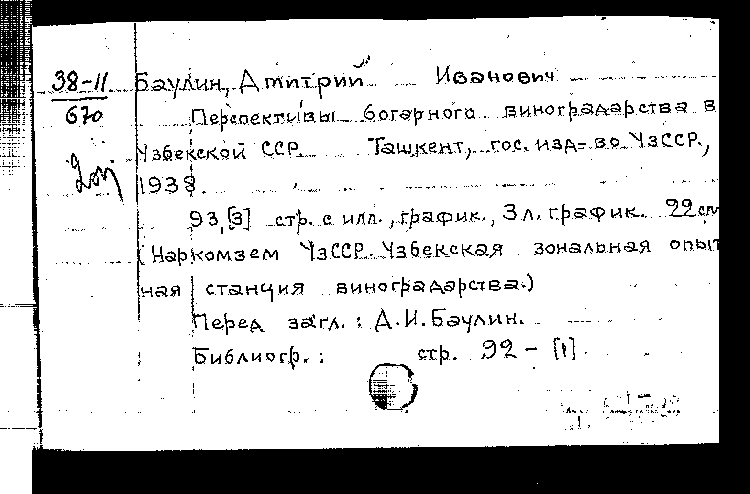 38-11
670
Баулин, Дмитрий Иванович
Перспективы богарного виноградарства в
Узбекской ССР. Ташкент, гос. изд-во УзССР.,
1938.
93,[3] стр. с илл., график., 3 л. график. 22 см
(Наркомзем УзССР Узбекская зональная опыт
ная станция виноградарства.)
Перед загл.: Д.И.Баулин.
Библиогр.: стр. 92 - [1]